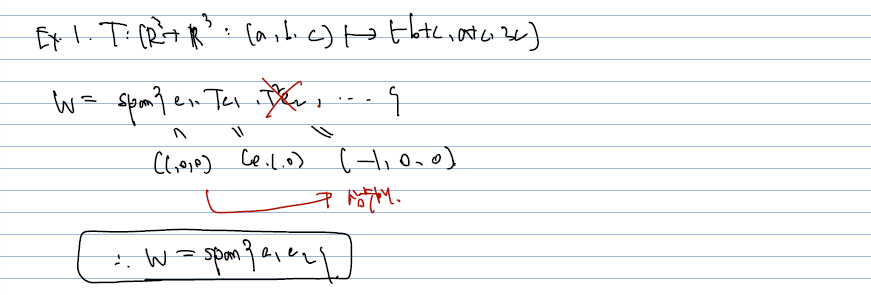 Ex 1. T: ℝ³→ℝ³ : (a, b, c) ↦ (-b+c, a+c, 3c)
W = span{e₁, Te₁, T²e₂, ... }
(1,0,0) (0,1,0) (-1,0,0)
∴ W = span{e₁ e₂}